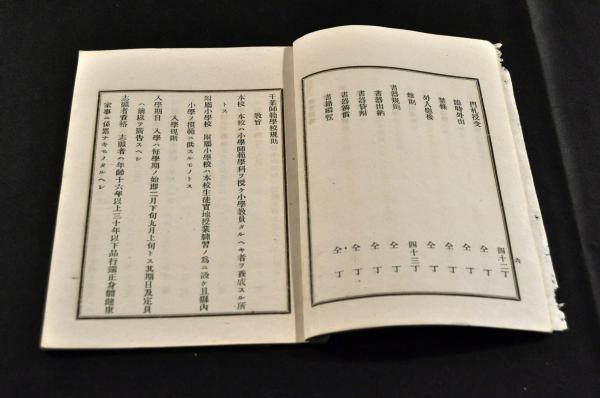 六
門札授受 四十二丁
臨時外出 仝丁
禁條 仝丁
外人應接 仝丁
雜則 四十三丁
書器規則 仝丁
書器出納 仝丁
書器貸附 仝丁
書器辨償 仝丁
書籍縱覽 仝丁
千葉師範學校規則
敎旨
本校 本校ハ小學師範學科ヲ授ケ小學敎員タルヘキ者ヲ養成スル所
トス
附屬小學校 附屬小學校ハ本校生徒實地授業練習ノ爲ニ設ケ且縣內
小學ノ模範ニ供スルモノトス
入學規則
入學期日 入學ハ每學期ノ始即二月下旬九月上旬トス其期日及定員
ハ前以テ廣告スヘシ
志願者資格 志願者ハ年齡十六年以上三十年以下品行端正身體健康
家事ニ係累ナキモノタルヘシ